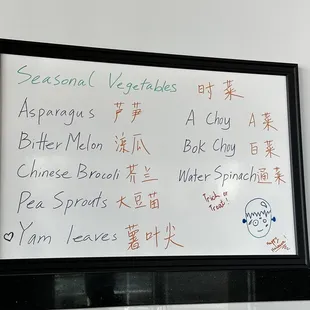 Seasonal Vegetables 时菜
Asparagus 芦笋
Bitter Melon 涼瓜
Chinese Brocoli 芥兰
Pea Sprouts 大豆苗
Yam leaves 薯叶尖
A Choy A菜
Bok Choy 白菜
Water Spinach 通菜
Trick or
Treat!